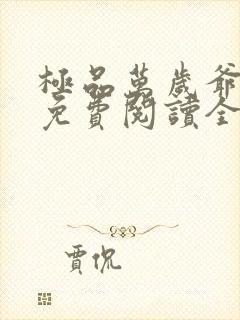 極品萬歲爺
免費閱讀全
賈侃